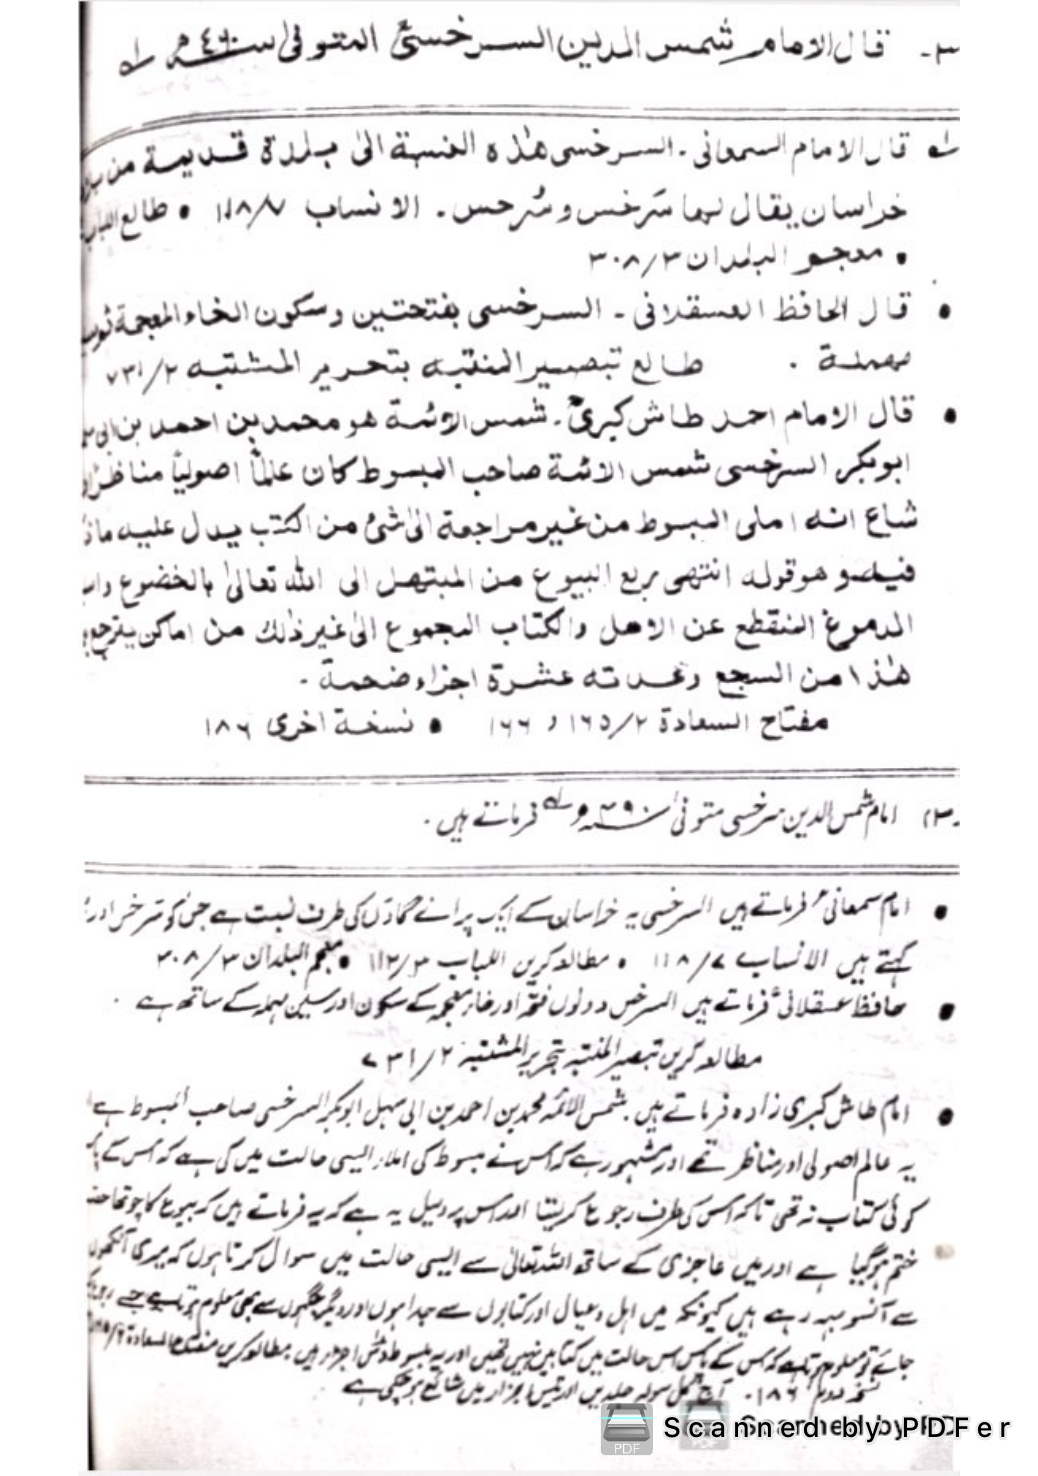 ٣- قال الامام شمس الدين السرخسیؒ المتوفی سنہ ٤٩٠ھ لہ
لہ قال الامام السمعانی۔ السرخسی ھذہ النسبة الی بلدة قدیمة من بلاد
خراسان یقال لہا سَرخس و سُرخس۔ الانساب ١١٨/٧ • طالع اللباب
• معجم البلدان ٣٠٨/٣
• قال الحافظ العسقلانی۔ السرخسی بفتحتین وسکون الخاء المعجمة ثم
مہملة . طالع تبصیر المنتبہ بتحریر المشتبہ ٧٣١/٢
• قال الامام احمد طاش کبریؒ۔ شمس الائمة ھو محمد بن احمد بن ابی
ابوبکر السرخسی شمس الائمة صاحب المبسوط کان عالماً اصولیاً مناظراً
شاع انہ املی المبسوط من غیر مراجعة الی شیٔ من الکتب یدل علیہ
فیہ وھو قولہ انتہی ربع البیوع من المبتھل الی اللہ تعالیٰ بالخضوع
الدموع المنقطع عن الاھل والکتاب المجموع الیٰ غیر ذلک من اماکن
ھٰذا من السجع وعدتہ عشرة اجزاء ضخمة۔
مفتاح السعادة ١٦٥/٢ و ١٦٦ • نسخة اخری ١٨٦
(٣- امام شمس الدین سرخسی متوفی سنہ ٤٩٠ھ لہ فرماتے ہیں۔
• امام سمعانیؒ فرماتے ہیں السرخسی یہ خراسان کے ایک پرانے گاؤں کی طرف نسبت ہے جس کو سرخس اور
کہتے ہیں الانساب ١١٨/٧ • مطالعہ کریں اللباب ١١٢/٣ • معجم البلدان ٣٠٨/٣
• حافظ عسقلانیؒ فرماتے ہیں السرخس دونوں فتحہ اور خاء معجمہ کے سکون اور سین مہملہ کے ساتھ ہے .
مطالعہ کریں تبصیر المنتبہ بتحریر المشتبہ ٧٣١/٢
• امام طاش کبری زادہ فرماتے ہیں۔ شمس الائمہ محمد بن احمد بن ابی سہل ابوبکر السرخسی صاحب المبسوط ہے
یہ عالم اصولی اور مناظر تھے اور مشہور ہے کہ اس نے مبسوط کی املاء ایسی حالت میں کی ہے کہ اس کے پاس
کوئی کتاب نہ تھی تاکہ اس کی طرف رجوع کر لیتا اور اس پر دلیل یہ ہے کہ یہ فرماتے ہیں کہ بیوع کا چوتھا حصہ
ختم ہوگیا ہے اور میں عاجزی کے ساتھ اللہ تعالیٰ سے ایسی حالت میں سوال کرتا ہوں کہ میری آنکھوں
سے آنسو بہہ رہے ہیں کیونکہ میں اہل وعیال اور کتابوں سے جدا ہوں اور دیگر جگہوں سے بھی معلوم ہوتا ہے جسے
جائے تو معلوم ہوتا ہے کہ اس کے پاس اس حالت میں کتابیں نہیں تھیں اور یہ مبسوط دس اجزاء ہیں۔ مطالعہ کریں مفتاح السعادة
نسخہ دوم ١٨٦۔ آج کل سولہ جلدیں اور تیس اجزاء میں شائع ہو چکی ہے
Scanned by PDFer